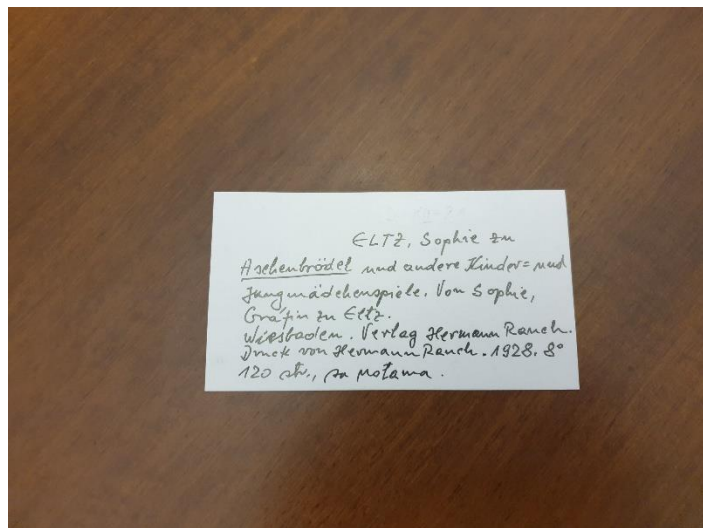 ELTZ, Sophie zu
Aschenbrödel und andere Kinder= und
Jungmädchenspiele. Von Sophie,
Gräfin zu Eltz.
Wiesbaden. Verlag Hermann Rauch.
Druck von Hermann Rauch. 1928. 8°
120 str., sa notama.